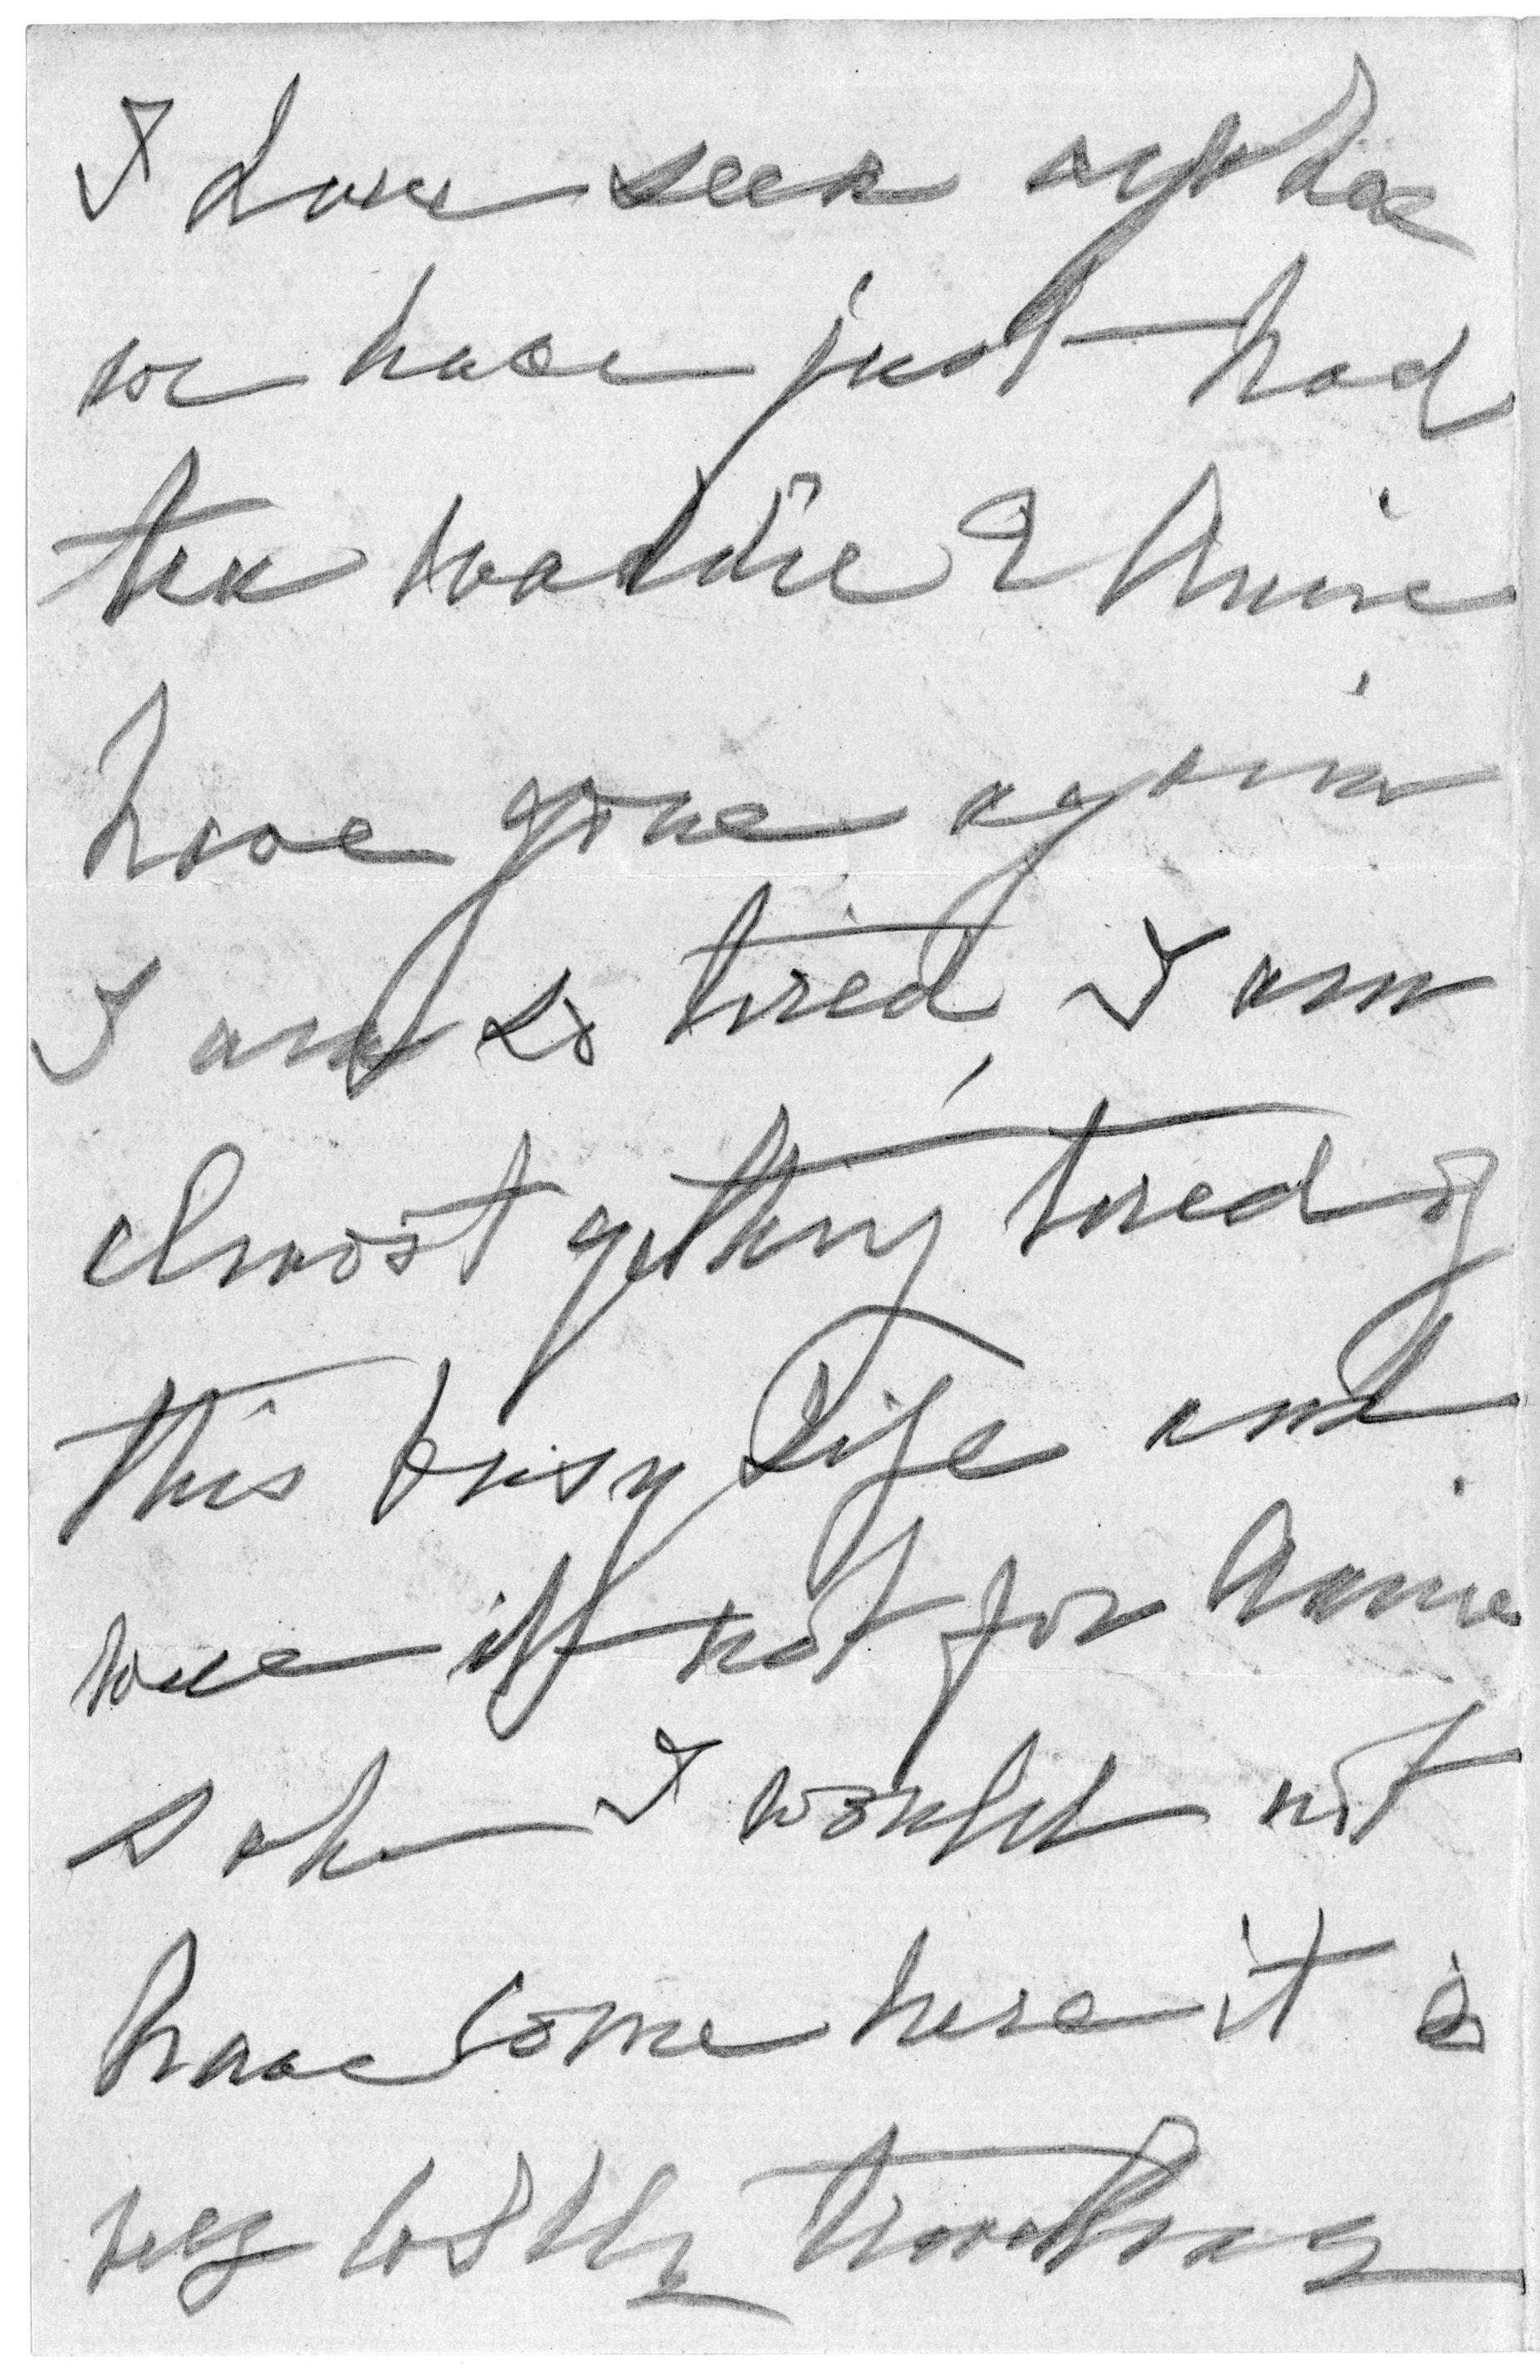 I have seen
we have just had
tea Waddie & Annie
have gone again
I am so tired, I am
almost getting tired of
this busy Life and
was it not for Annie
sake I would not
have come here it is
very costly travelling